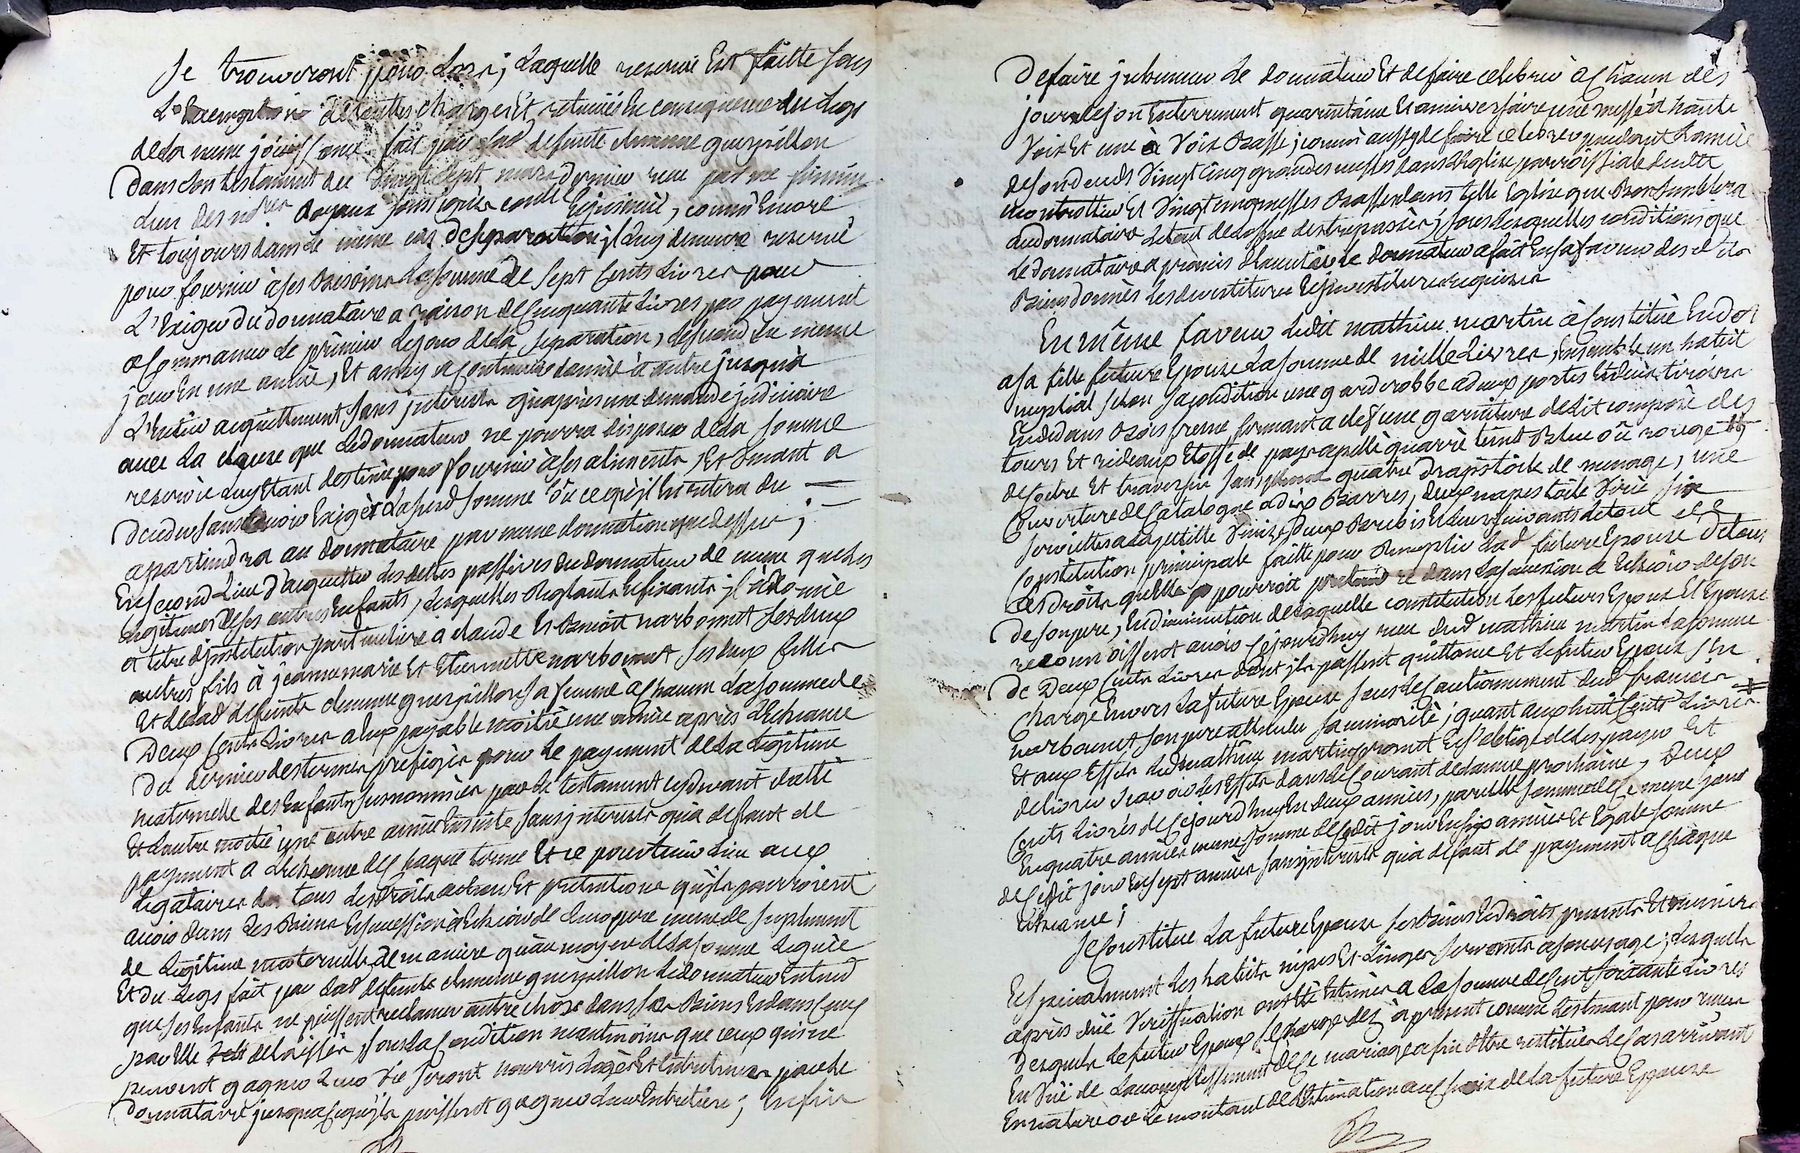 Se trouveront pour lors; laquelle reserve Est faitte sous
L'exemption de touttes charges Et retenües En consequence du Legs
de la meme jöuissance fait par lad. defunte etiennette guerpillon
Dans son testament du Vingt sept mars dernier recu par me
L'un des nores royaux soussignés controllé, comme Encore
Et toujours dans le meme cas de separation, il luy demeure reservé
pour fournir à ses Besoins La somme de Sept Cents Livres pour
L'Exiger du donnataire a raison de Cinquante Livres par payement
a Commancer le prémier le jour de la Separation, le second au meme
jour En une année, Et ainsy a Continuer d'année à autre jusquà
L'Entier acquittement sans interests qu'après une demande judiciaire
avec La clause que Ledonnateur ne pourra disposer de la somme
reservée Luy Etant destinée pour fournir à ses aliments, Et venant a
Deceder sans avoir Exigé Lasusd somme ou ce qu'il En restera du
apartiendra au donnataire par meme donnation que dessus;
En second Lieu d'acquitter Les dettes passives du donnateur de meme que les
Legitimes de ses autres Enfants, Lesquelles Reglant Et fixant, il a donné
et titre d'institution particuliere à claude Et Benoitt narbonnet ses deux
autres fils à jeanne marie Et Etiennette narbonnet ses deux filles
Et de lad defunte etiennette guerpillon sa femme à Chacun La somme de
Deux Cents Livres a Eux payable moitié une année après L'echeance
Du dernier des termes prefigés pour le payement de la Legitime
maternelle des Enfants susnommés par le testament cydevant datté
Et L'autre moitié une autre année Ensuite sans interests qu'a deffaut de
payement a L'echeance de Chaque terme Et ce pour tenir Lieu aux
Legataires de tous Les Droits actions Et prétentions qu'ils pourroient
avoir dans Les Biens Et succession à Echeoir de Leur pere meme de suplement
de Legitime maternelle de maniere qu'au moyen de la somme Leguée
Et du Legs fait par lad defunte etiennette guerpillon Ledonnateur Entend
que ses Enfants ne puissent reclamer autre chose dans ses Biens Et dans Ceux
par Elle delaissés, sous La Condition neantmoins que ceux qui ne
peuvent gagner Leur Vie seront nourris Logés Et Entretenus par le
Donnataire jusqu'a ce qu'ils puissent gagner Leur Entretien; Enfin
De faire inhumer Le donnateur Et de faire celebrer à Chacun des
jours de son Enterrement quarantaine Et anniversaire une messe à haute
Voix Et une à Voix Basse; comme aussy de faire celebrer pendant L'année
de son decés Vingt Cinq grandes messes dans L'Eglise parroissiale dudit
Et Vingt cinq messes Basses dans telle Eglise que Bon semblera
au donnataire Le tout de l'office des trepassés; sous Lesquelles conditions que
Le donnataire a promis d'executer le donnateur a fait En sa faveur des dits
Biens donnés Les devestitures Et investitures requises
En même faveur, Ledit mathieu martin à Constitué En dot
a sa fille future Epouse La somme de mille Livres, Ensemble un habit
nuptial selon sa condition une garderobbe a deux portes Et deux tiroirs
En dedans Bois fresne fermant a clef une garniture de lit composé des
tours Et rideaux Etoffe de pays apellé quarré teint Bleu oû rouge
de Coetre Et traversin sans plume quatre draps toile de menage, une
Couverture de Catalogne a dix Barres, deux napes toile Vivié six
serviettes a la petitte Venize deux Brebis Et Leurs suivants de tout
Constitution principale faitte pour Remplir lad future Epouse de tous
Les Droits quelle pouvoit pretendre dans La succession à Echeoir de son
De son pere, En diminution de laquelle constitution Les futurs Epoux Et Epouse
reconnoissent avoir Cejourdhuy recu dud mathieu martin La somme
de Deux Cents Livres dont ils passent quittance Et Le futur Epoux s'En
Charge Envers La future Epouse sous Le Cautionnement dud francois
narbonnet son pere attendu sa minorité; quant aux huit Cents Livres
Et aux Effets Led mathieu martin promet Et s'oblige de les payer Et
delivrer scavoir Les Effets dans le Courant de L'année prochaine, Deux
Cents Livres de Cejourdhuy En deux années, pareille somme de Ce meme jour
En quatre années meme somme de Cedit jour En six années Et Egale somme
de Cedit jour En sept années sans interests qu'a defaut de payement a Chaque
Echeance;
Se Constitue La future Epouse ses Biens Et droits presents Et avenir
Et specialement Les habits nipes Et Linges servants a son usage, Lesquels
après düe Verification ont Eté Estimés a La somme de Cent soixante Livres
Desquels Le futur Epoux se charge dez à present comme Les tenant pour recus
En Vüe de L'accomplissement de Ce mariage afin d'Etre restitués Le Cas arrivant
En nature ou Le montant de L'Estimation aux Choix de la future Epouse